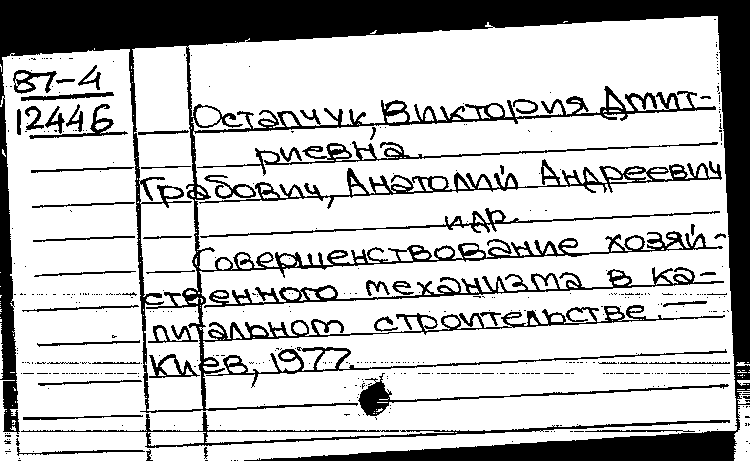 87-4
12446
Остапчук, Виктория Дмит-
риевна.
Грабович, Анатолий Андреевич
и др.
Совершенствование хозяй-
ственного механизма в ка-
питальном строительстве. —
Киев, 1977.